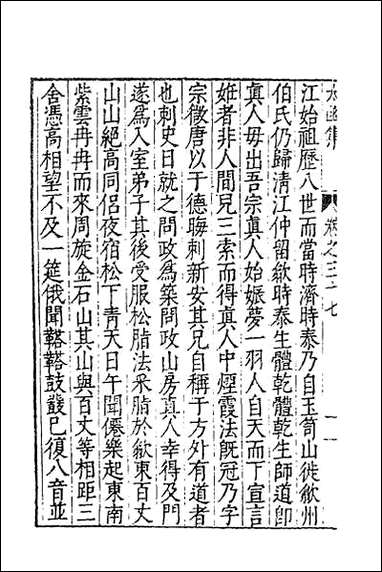 太函集 卷之三十七 二
江始祖歷八世而當時濟時泰乃自玉笥山徙歙州
伯氏仍歸清江仲留歙時泰生體乾體乾生師道卽
真人毋出吾宗真人始娠夢一羽人自天而下宣言
姙者非人間兄三索而得真人中煙霞法旣冠乃字
宗徵唐以于德晦刺新安其兄自稱于方外有道者
也刺史日就之問政爲築問政山房真人幸得及門
遂爲入室弟子其後受服松脂法采脂於歙東百丈
山山絕高同侶夜宿松下青天日午聞僊樂起東南
紫雲冉冉而來周旋金石山其山與百丈等相距三
舍憑高相望不及一筵俄聞鞳鞳鼓嚴已復八音並